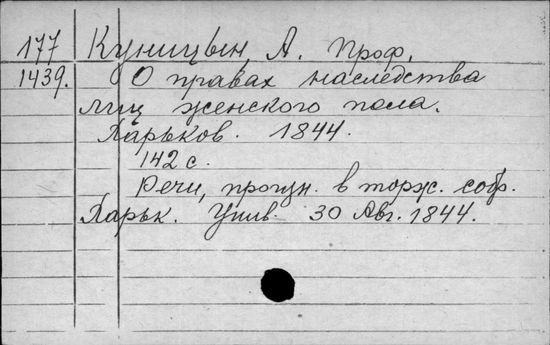 177 Куницын, А. Проф.
1439. О правах наследства
лиц женского пола.
Харьков. 1844.
142 с.
Речи, произн. в торж. собр.
Харьк. Унив. 30 Авг. 1844.